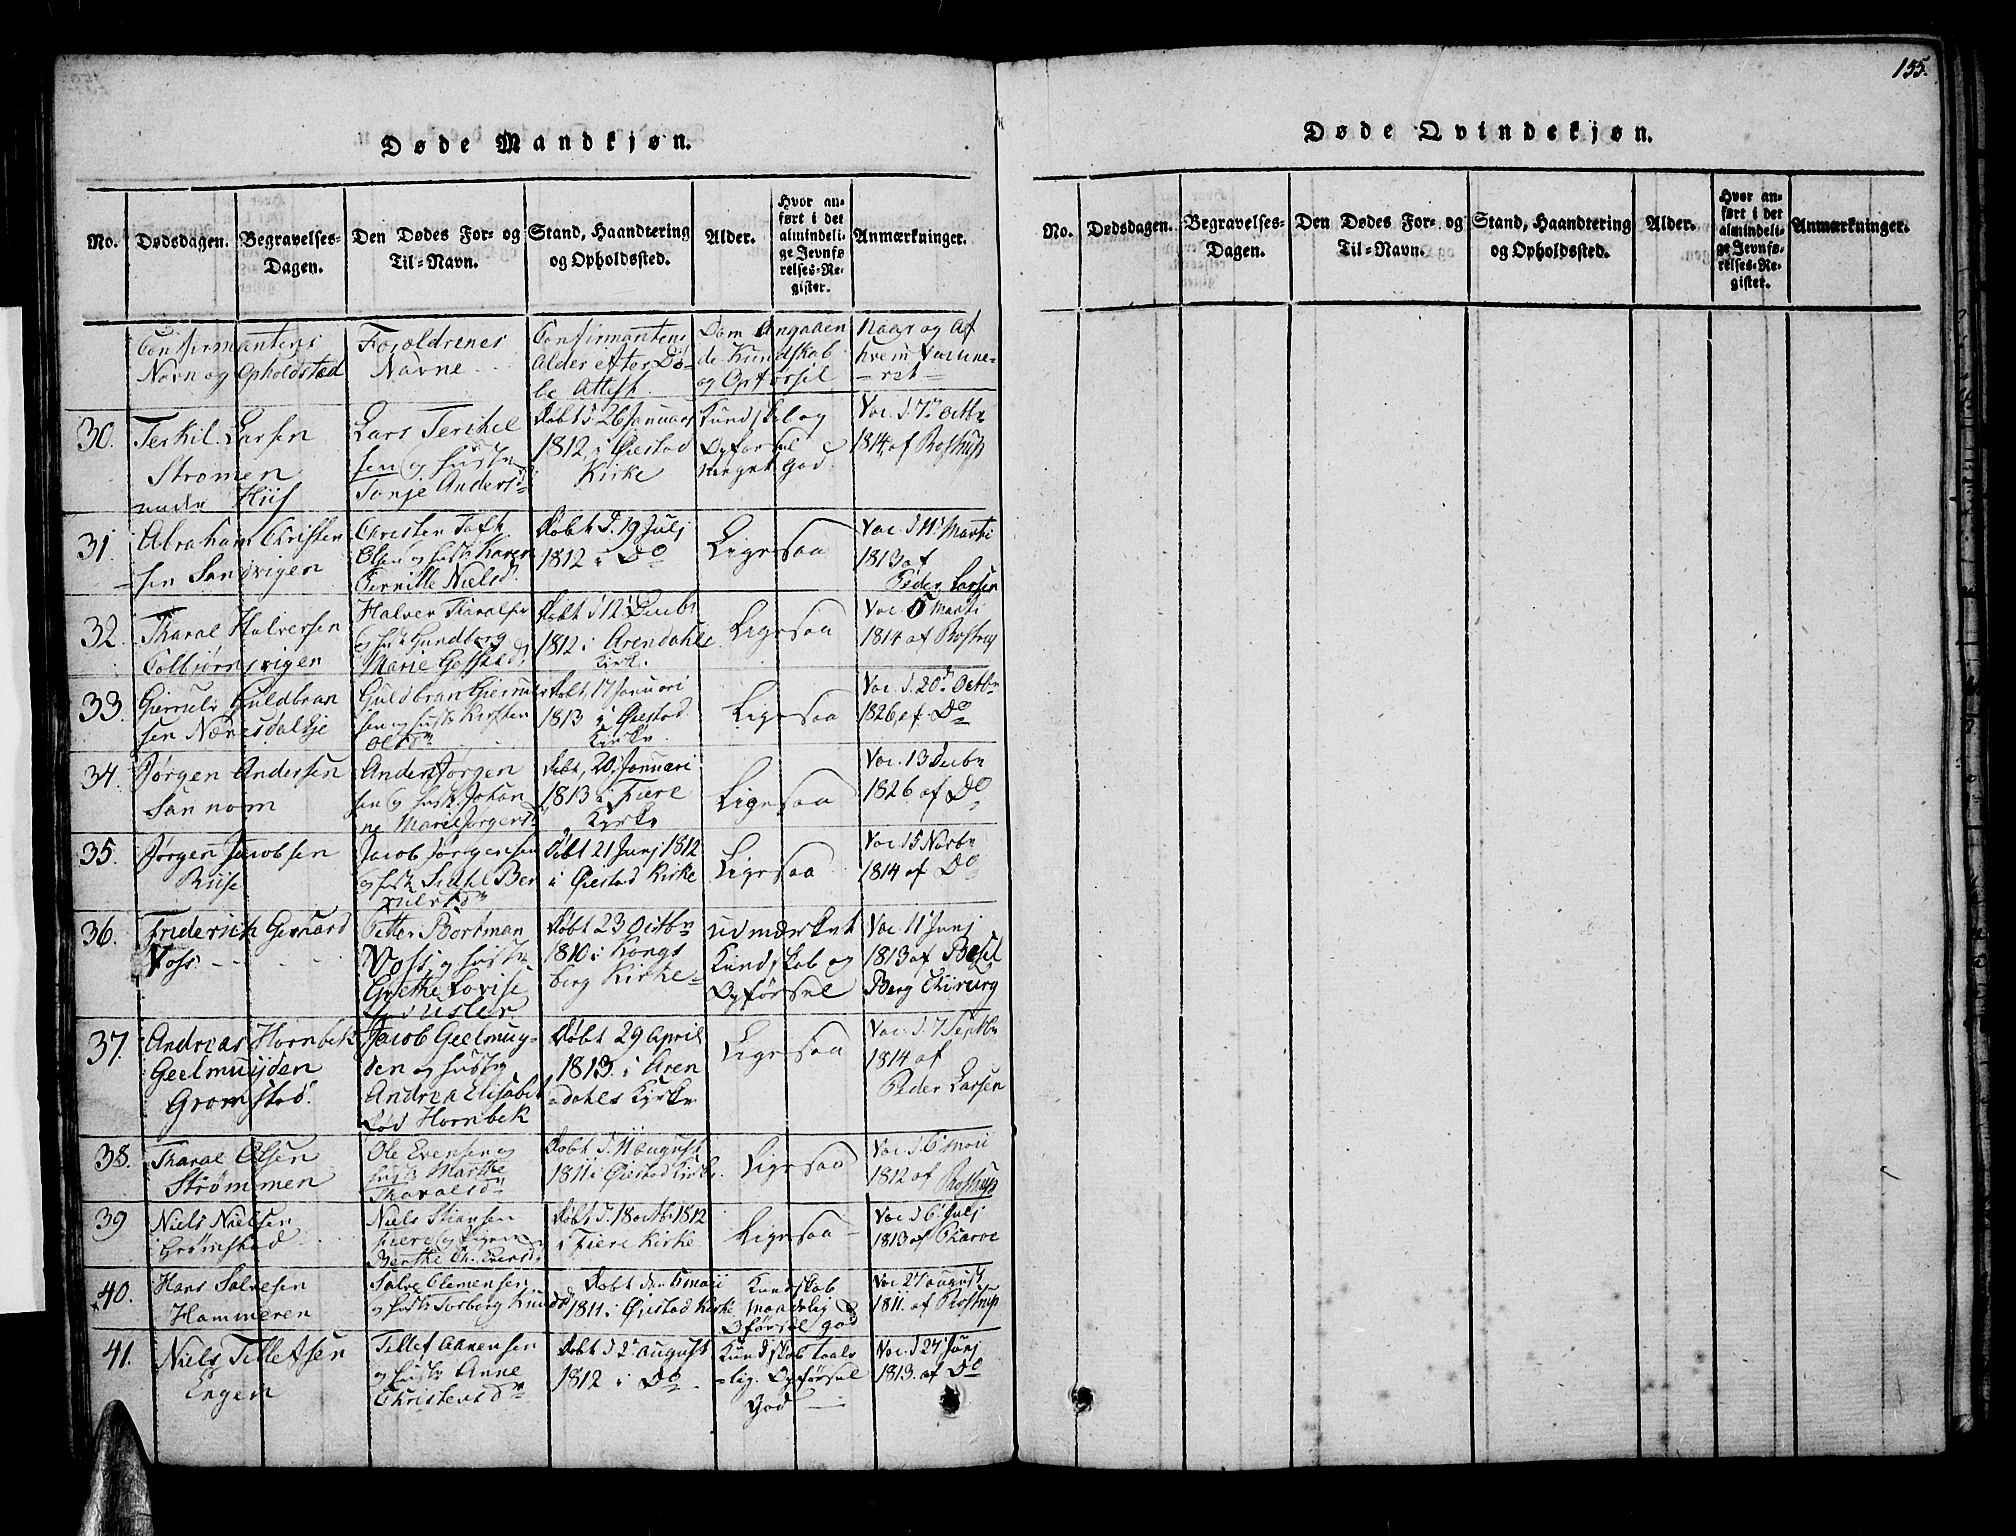 155.
Døde Mandkjøn.
No.
Dødsdagen.
Begravelses-
Dagen.
Den Dødes For- og
Til-Navn.
Stand, Haandtering
og Opholdssted.
Alder.
Hvor an-
ført i det
almindeli-
ge Jevnfø-
relses-Re-
gister.
Anmærkninger.
Confirmantens
Navn og Opholdsted
Forældrenes
Navne
Confirmantens
Alder efter Dø-
be Attest
Dom Angaaen
de Kundskab
og Opførsel
Naar og Af
hvem Vaccine-
ret
30.
Terkil Larsen
Strømen
under Hiis
Lars Terchel
sen og hustr
Tonje Andersd
Døbt d. 26 Januar
1812, i Øiestad
Kirke
Kundskab og
Opførsel
meget God.
Vac. d. 7 Octbr
1814, af Rostrup
31.
Abraham Christen
sen Sandvigen
Christen Toft
Olsen og hustr Karen
Pernille Nielsd.
Døbt d. 19 Julj
1812 i Do
Ligesaa
Vac. d. 11 Marti
1813 af
Peder Larsen
32.
Tharal Halversen
Colbjørnsvigen
Halver Tharalsen
og hust. Gundborg
Marie Gofstad
Døbt d. 12 Decbr
1812 i Arendahls
Kirk.
Ligesaa
Vac. 5 Marti
1814 af Rostrup
33.
Giermuls Guldbran
sen Nænesdalseje
Guldbran Giermuls
sen og hustr Kirsten
Olsdr
Døbt, 17 Januari
1813 i Øiestad
Kirke
Ligesaa
Vac. d. 20 Octbr
1826, af Do
34.
Jørgen Andersen
Sannom
Anders Jørgen
sen og hust. Johan
ne Marie Jørgensd
Døbt, 20 Januari
1813 i Fiere
Kyrke
Ligesaa
Vac. 13 Decbr
1826 af Do
35.
Jørgen Jacobsen
Riise
Jacob Jørgensen
og hustr Sidsel Ber
Døbt 21 Junj 1812
i Øiestad Kirke
Ligesaa
Vac 15 Novbr
1814 af Do
36.
Friderich Gerhard
Voss
Petter Bortman
Voss og hustr
Grethe Lovise
Døbt 23 Octbr
1810 i Kongs
berg Kirke
udmærket
Kundskab og
Opførsel
Vac. 11 Junj
1813 af Besel
Berg Chirurg
37.
Andreas Hornbek
Geelmuijden
Gromstad
Jacob Geelmuy-
den og hustr
Andrea Elisabet
Lød Hornbek
Døbt 29 April
1813. i Aren
dahls Kyrke
Ligesaa
Vac. d. 7 Septbr
1814 af
Peder Larsen
38.
Tharal Olsen
Strømmen
Ole Evensen og
hustr Marthe
Tharalsdr
Døbt d. 11 August
1811 i Øiestad Kirke.
Ligesaa
Vac d. 6 Maii
1812 af Rostrup
39
Niels Nielsen
Grømstad
Niels Stiansen
Fiere og Pigen
Berthe Chr. Evensd.
Døbt d. 18 octbr 1812
i Fiere Kirke
Ligesaa
Vac d. 6 Julj
1813 af Tharae
40.
Hans Salvesen
Hammeren
Salve Clemensen
og hustr Torborg Knudsd
Døbt den 5 Maii
1811 i Øiestad Kirke
Kundskab
maadelig
Opførsel god
Vac 27 august
1811. af Rostrup
41.
Niels Tellefsen
Engen
Tellef Aanensen
og hustr Anne
Christensdr
Døbt d. 2 august
1812 i Do
Kundskab taale
lig. Opførsel
God
Vac. d 27 Junj
1813. af Do
Døde Qvindekjøn.
No.
Dødsdagen.
Begravelses-
Dagen.
Den Dødes For- og
Til-Navn.
Stand, Haandtering
og Opholdssted.
Alder.
Hvor an-
ført i det
almindeli-
ge Jevnfø-
relses-Re-
gister.
Anmærkninger.